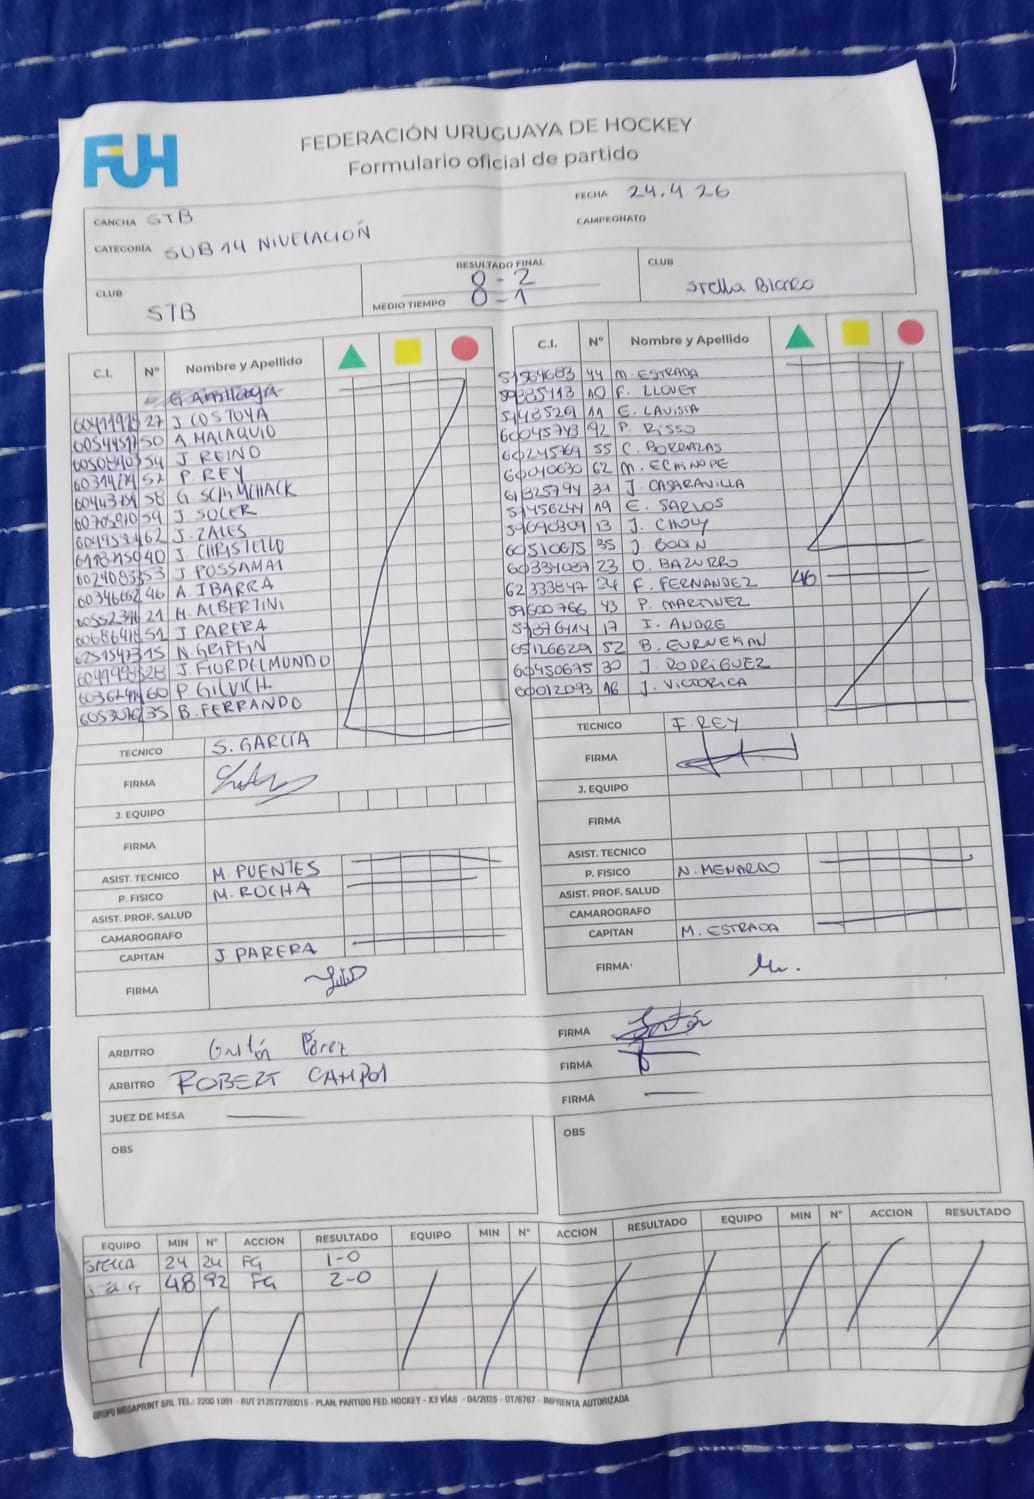 FUH
FEDERACIÓN URUGUAYA DE HOCKEY
Formulario oficial de partido
CANCHA STB
FECHA 24.4 26
CATEGORÍA SUB 14 NIVELACIÓN
CAMPEONATO
CLUB STB
RESULTADO FINAL 0-2
MEDIO TIEMPO 0-1
CLUB Stella Bianco
C.I. Nº Nombre y Apellido
27 J COSTOYA
50 A MALAQUIO
54 J REINO
P REY
58 G SCHIMCHACK
59 J SOLER
62 J. ZALES
40 J. CHRISTELLO
53 J POSSAMAI
46 A IBARRA
21 M. ALBERTINI
51 J PARERA
15 N. GRIFFIN
28 J. FIORDELMUNDO
60 P GILVICH
35 B. FERRANDO
TECNICO S. GARCIA
FIRMA
J. EQUIPO
FIRMA
ASIST. TECNICO M. PUENTES
P. FISICO M. ROCHA
ASIST. PROF. SALUD
CAMAROGRAFO
CAPITAN J PARERA
FIRMA
C.I. Nº Nombre y Apellido
44 M. ESTRADA
10 F. LLOVET
11 E. LAVISTA
60045743 92 P. RISSO
60245769 55 C. BORRAZAS
62 M. ECHINOPE
61325794 31 J. CASARAVILLA
19 E. SARLOS
13 J. CHOUY
60510675 35 J. GODIN
23 O. BAZURRO
62333847 F. FERNANDEZ 46
43 P. MARTINEZ
17 I. ANDRE
52 B. EURNEKIAN
60450675 30 J. RODRIGUEZ
60012093 16 J. VICTORICA
TECNICO F. REY
FIRMA
J. EQUIPO
FIRMA
ASIST. TECNICO
P. FISICO N. MENARDO
ASIST. PROF. SALUD
CAMAROGRAFO
CAPITAN M. ESTRADA
FIRMA
ARBITRO Gastón Pérez FIRMA
ARBITRO ROBERT CAMPOS FIRMA
JUEZ DE MESA FIRMA
OBS
OBS
EQUIPO MIN Nº ACCION RESULTADO EQUIPO MIN Nº ACCION RESULTADO EQUIPO MIN Nº ACCION RESULTADO
STELLA 24 24 FG 1-0
48 92 FG 2-0
GRUPO MEGAPRINT SRL TEL.: 2200 1091 - RUT 212572760015 - PLAN. PARTIDO FED. HOCKEY - X3 VÍAS - 04/2025 - OT/8767 - IMPRENTA AUTORIZADA